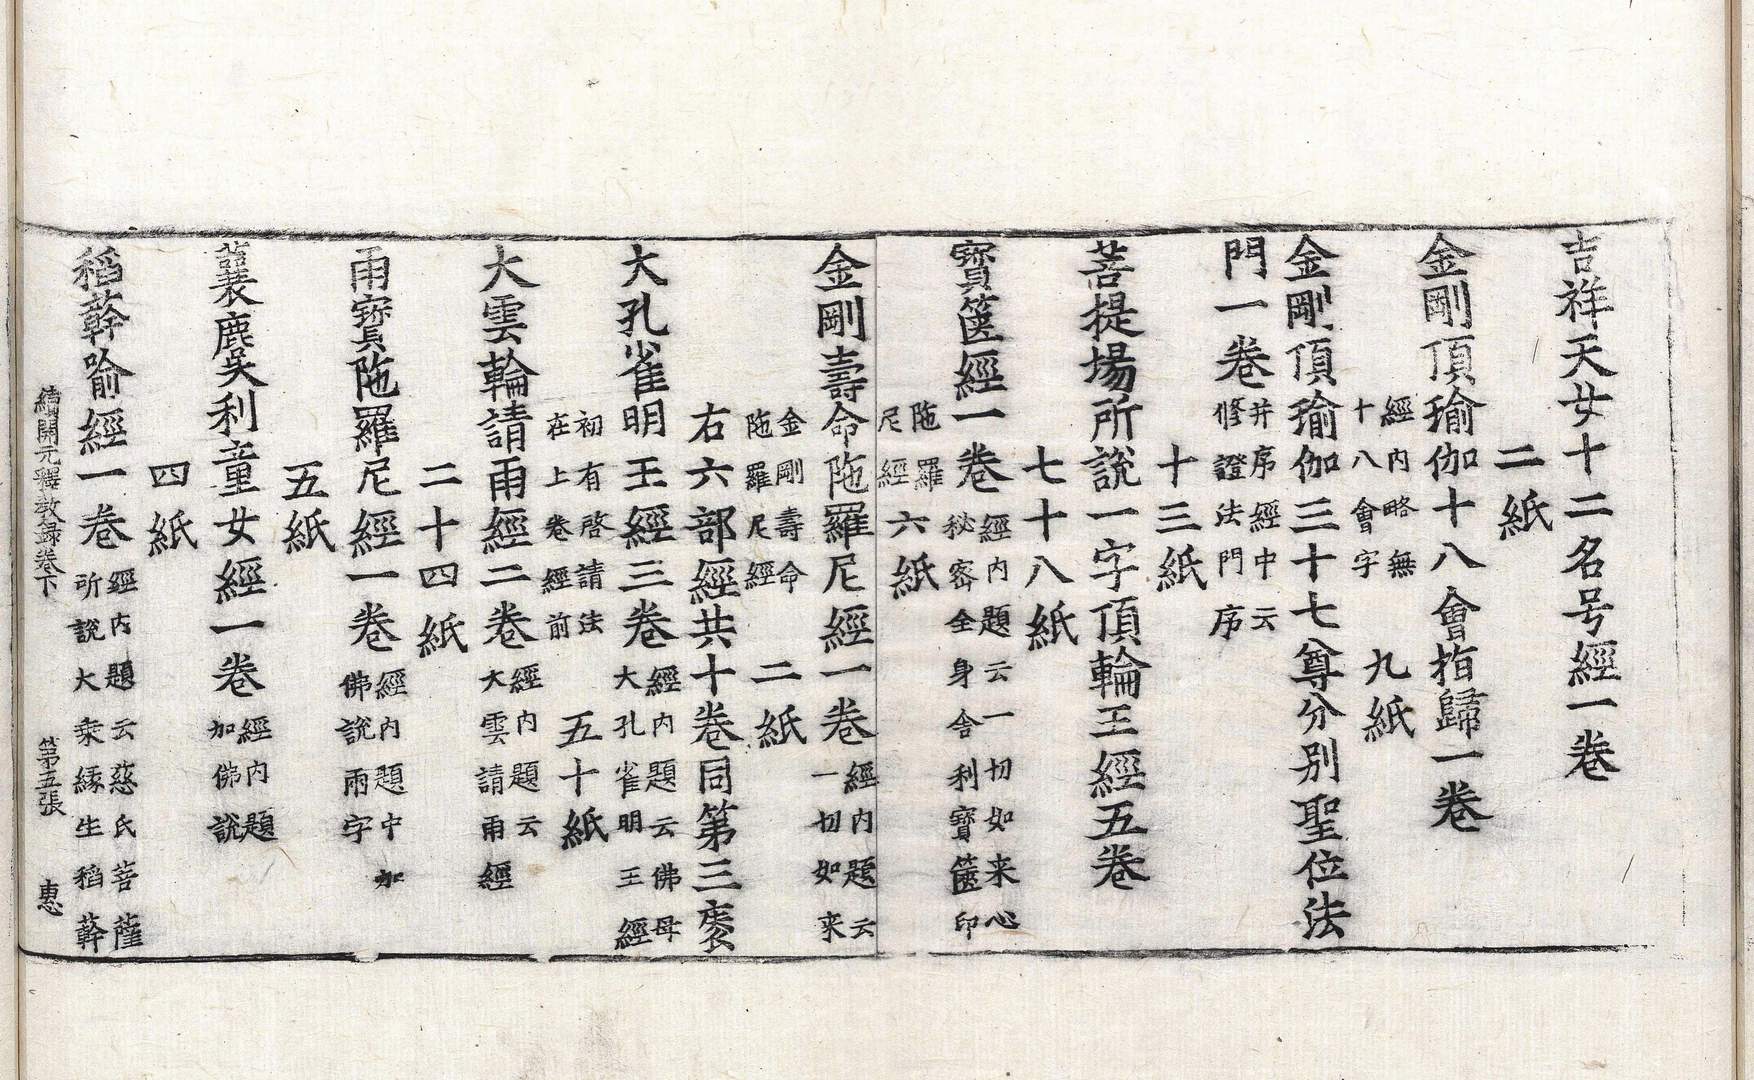 吉祥天女十二名号經一卷
二紙
金剛頂瑜伽十八會指歸一卷
經內略無
十八會字
九紙
金剛頂瑜伽三十七尊分別聖位法
門一卷
并序經中云
修證法門序
十三紙
菩提場所說一字頂輪王經五卷
七十八紙
寶篋經一卷
經內題云一切如来心
秘密全身舍利寶篋印
陁羅
尼經
六紙
金剛壽命陁羅尼經一卷
經內題云
一切如来
金剛壽命
陁羅尼經
二紙
右六部經共十卷同第三袠
大孔雀明王經三卷
經內題云佛母
大孔雀明王經
初有啓請法
在上卷經前
五十紙
大雲輪請雨經二卷
經內題云
大雲請雨經
二十四紙
雨寳陁羅尼經一卷
經內題中加
佛說雨字
五紙
蘘麌梨利童女經一卷
經內題
加佛說
四紙
稻𦼮喻經一卷
經內題云慈氏菩薩
所說大乘緣生稻𦼮
續開元釋教録卷下 第五張 惠